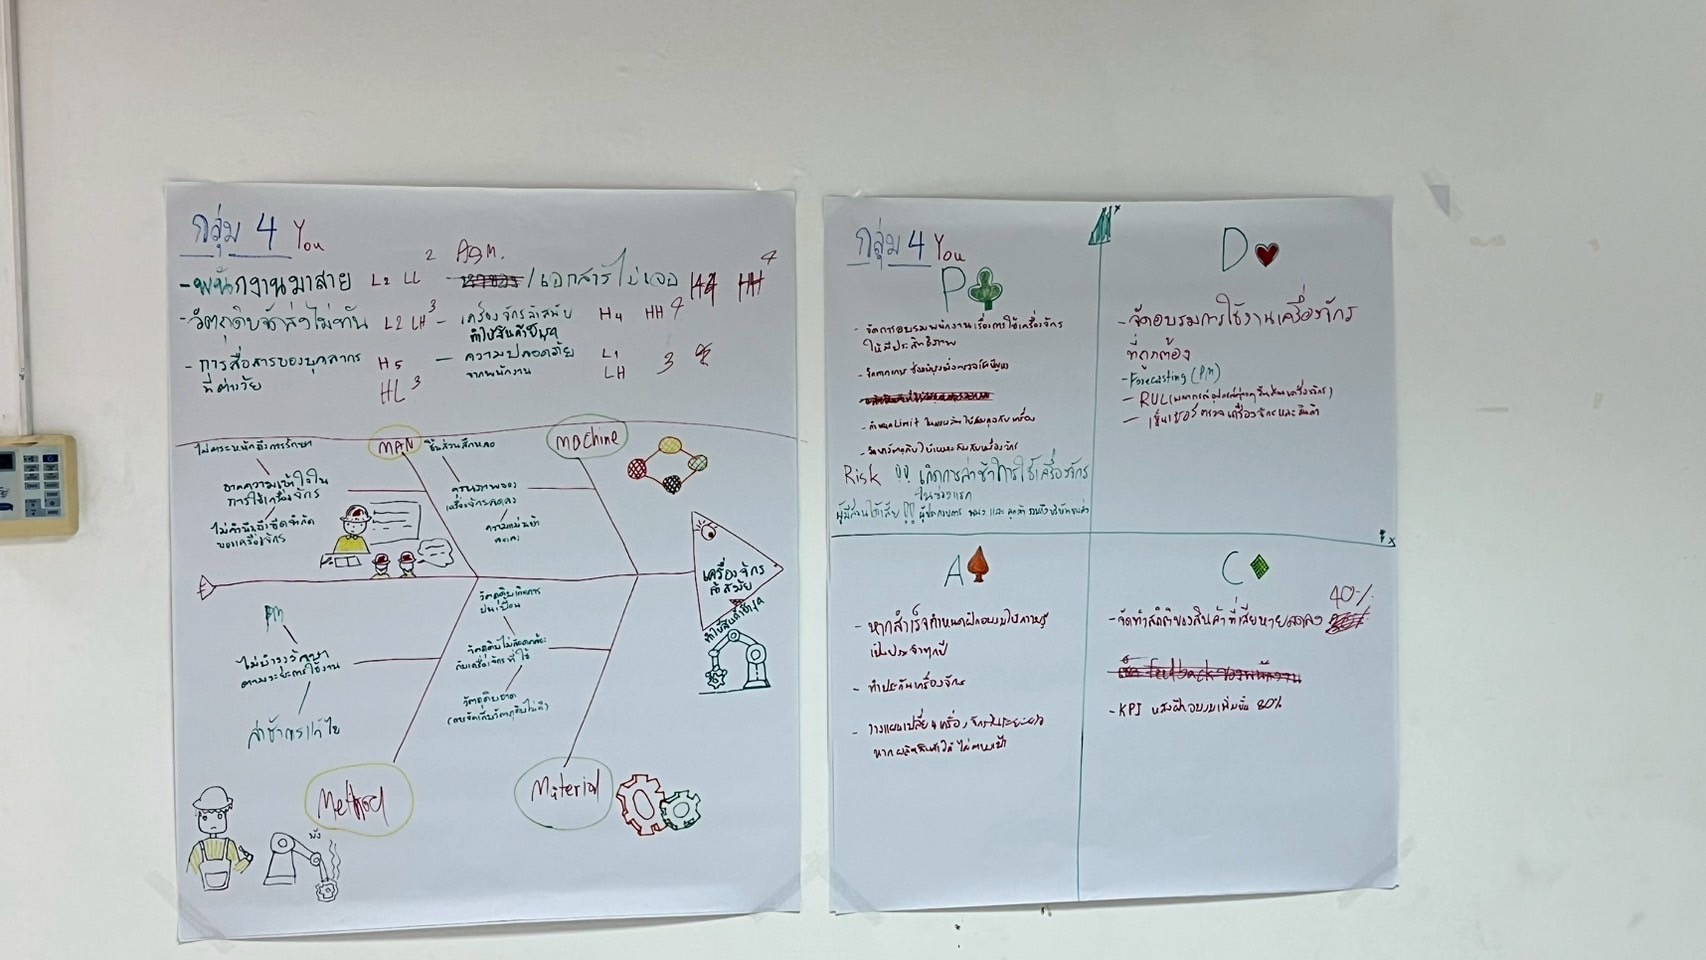 กลุ่ม 4 You
-พนักงานมาสาย L2 LL 2
-วัตถุดิบจัดส่งไม่ทัน L2 LH 3
-การสื่อสารของบุคลากร H5
ที่ต่างวัย HL 3
/เอกสารไม่เจอ HH 4
- เครื่องจักรล้าสมัย H4 HH 4
ทำให้สินค้าชำรุด
- ความปลอดภัย L1
จากพนักงาน LH 3
MAN
ไม่ตระหนักถึงการรักษา
ขาดความเข้าใจใน
การใช้เครื่องจักร
ไม่คำนึงถึงขีดจำกัด
ของเครื่องจักร
Machine
ชิ้นส่วนสึกหลอ
คุณภาพของ
เครื่องจักรลดลง
ความแม่นยำ
ลดลง
เครื่องจักร
ล้าสมัย
ทำให้สินค้าชำรุด
PM
ไม่บำรุงรักษา
ตามระยะการใช้งาน
ล่าช้าการแก้ไข
Method
วัตถุดิบเกิดการ
ปนเปื้อน
วัตถุดิบไม่สอดคล้อง
กับเครื่องจักรที่ใช้
วัตถุดิบขาด
(การจัดเก็บวัตถุดิบไม่ดี)
Material
พัง
กลุ่ม 4 You
P
- จัดการอบรมพนักงานเรื่องการใช้เครื่องจักร
ให้มีประสิทธิภาพ
- กำหนด Limit
Risk !! เกิดการล่าช้าการใช้เครื่องจักร
ในช่วงแรก
ผู้มีส่วนได้เสีย !!
D
- จัดอบรมการใช้งานเครื่องจักร
ที่ถูกต้อง
- Forecasting (PM)
- RUL
- เซ็นเซอร์ตรวจเครื่องจักรและสินค้า
A
- หากสำเร็จกำหนดฝึกอบรมให้ความรู้
เป็นประจำทุกปี
- ทำประกันเครื่องจักร
- วางแผนเปลี่ยนเครื่องจักรในระยะยาว
หากผลิตสินค้าได้ไม่ตามเป้า
C
- จัดทำสถิติของสินค้าที่เสียหายลดลง 40%
- KPI หลังฝึกอบรมเพิ่มขึ้น 80%